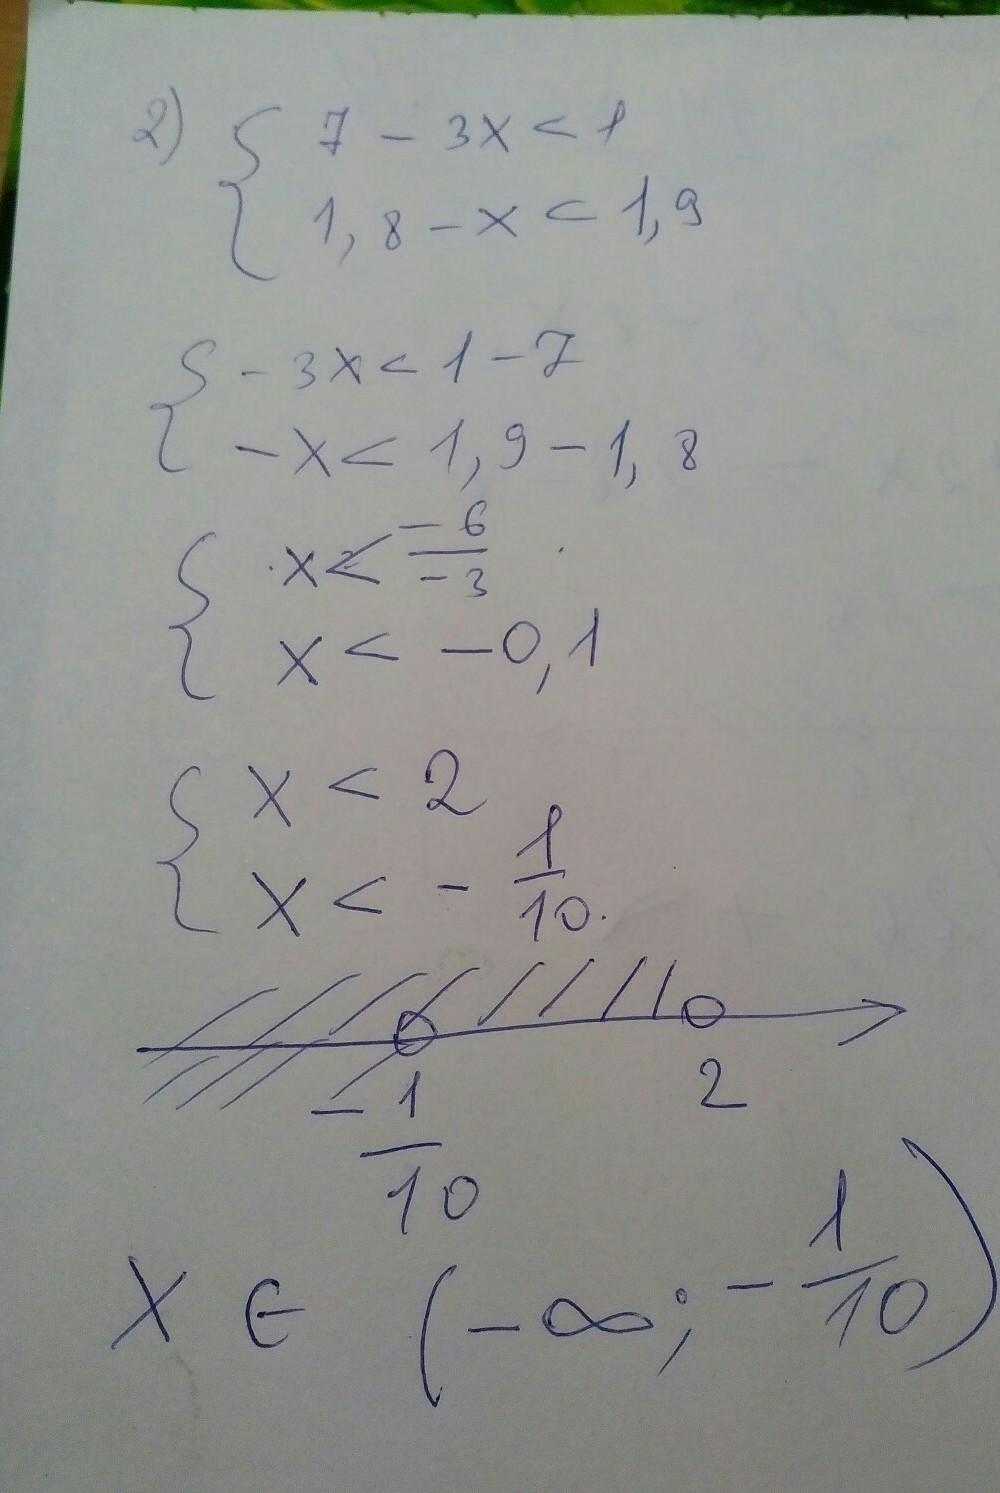 2) { 7 - 3x < 1
1,8 - x < 1,9
{ - 3x < 1 - 7
- x < 1,9 - 1,8
{ x < -6/-3
x < -0,1
{ x < 2
x < - 1/10.
- 1/10 2
x ∈ (-∞; - 1/10)